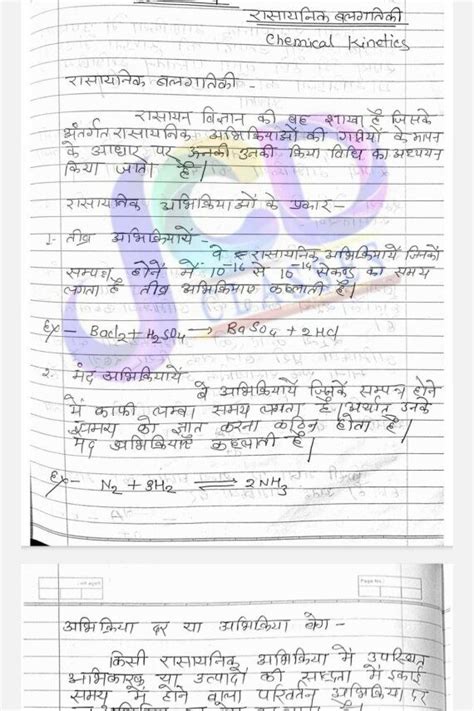 रासायनिक बलगतिकी
Chemical Kinetics
रासायनिक बलगतिकी -
रसायन विज्ञान की वह शाखा है जिसके
अंतर्गत रासायनिक अभिक्रियाओं की गतियों के मापन
के आधार पर उनकी क्रिया विधि का अध्ययन
किया जाता है।
रासायनिक अभिक्रियाओं के प्रकार -
1- तीव्र अभिक्रियायें -
वे रासायनिक अभिक्रियायें जिनको
सम्पन्न होने में 10⁻¹⁶ से 10⁻¹⁴ सेकण्ड का समय
लगता है तीव्र अभिक्रियाए कहलाती है।
Ex - BaCl₂ + H₂SO₄ → BaSO₄ + 2HCl
2- मंद अभिक्रियायें
वे अभिक्रियायें जिनके सम्पन्न होने
में काफी लम्बा समय लगता है अर्थात् उनके
समय को ज्ञात करना कठिन होता है।
मंद अभिक्रियाएँ कहलाती है।
Ex - N₂ + 3H₂ ⇌ 2NH₃
Page No.
अभिक्रिया दर या अभिक्रिया वेग -
किसी रासायनिक अभिक्रिया में उपस्थित
अभिकारक या उत्पादों की सान्द्रता में इकाई
समय में होने वाला परिवर्तन अभिक्रिया दर